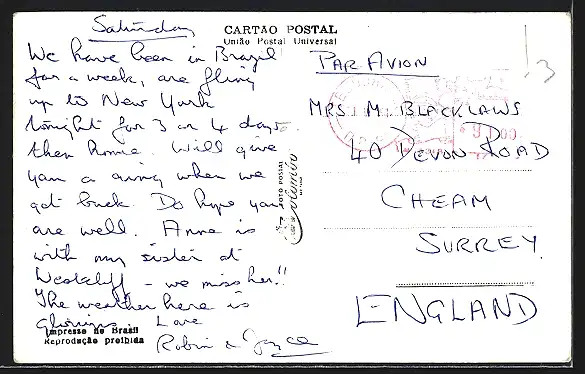 Saturday
We have been in Brazil
for a week, are flying
up to New York
tonight for 3 or 4 days
then home. Will give
you a ring when we
get back. Do hope you
are well. Anne is
with my sister at
Westcliff - we miss her!!
The weather here is
glorious. Love
Robin & Joyce
Impresso no Brasil
Reprodução proibida
FOTO POSTAL
Colombo
CARTÃO POSTAL
União Postal Universal
PAR AVION
MRS M BLACKLAWS
40 DEVON ROAD
CHEAM
SURREY.
ENGLAND
13